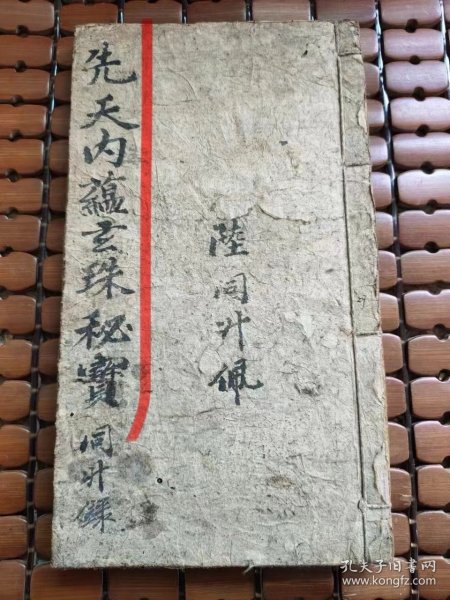 先天内蕴玄珠秘寶 同升録
陸同升佩
孔夫子旧书网
www.kongfz.com